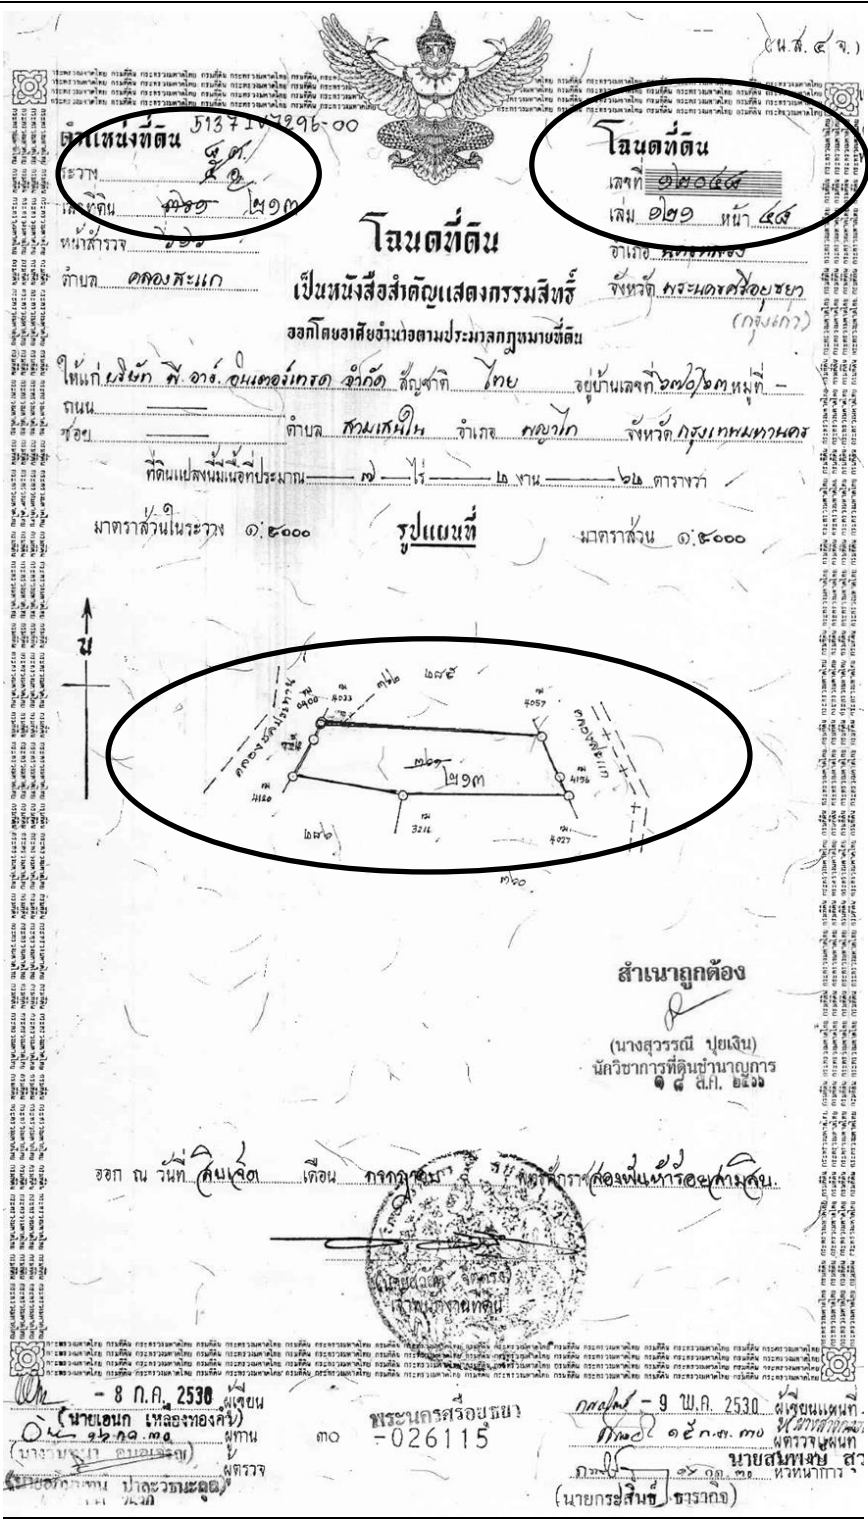 (น.ส. ๔ จ.)
ตำแหน่งที่ดิน 5137 IV 7296-00
ระวาง
เลขที่ดิน ๓๖๑ ๒๑๓
หน้าสำรวจ
ตำบล คลองสะแก
โฉนดที่ดิน
เลขที่ ๑๒๐๕๘
เล่ม ๑๒๑ หน้า ๕๘
อำเภอ นครหลวง
จังหวัด พระนครศรีอยุธยา
(กรุงเก่า)
โฉนดที่ดิน
เป็นหนังสือสำคัญแสดงกรรมสิทธิ์
ออกโดยอาศัยอำนาจตามประมวลกฎหมายที่ดิน
ให้แก่ บริษัท พี.อาร์.อินเตอร์เทรด จำกัด สัญชาติ ไทย อยู่บ้านเลขที่ ๖๗๐/๖๓ หมู่ที่ -
ถนน
ซอย ตำบล สามเสนใน อำเภอ พญาไท จังหวัด กรุงเทพมหานคร
ที่ดินแปลงนี้มีเนื้อที่ประมาณ ๗ ไร่ ๒ งาน ๖๒ ตารางวา
มาตราส่วนในระวาง ๑:๔๐๐๐ รูปแผนที่ มาตราส่วน ๑:๔๐๐๐
น
คลองชลประทาน
0900
4033
๓๖๒
๒๘๕
4057
คลองสะแก
๓๖๑
๒๑๓
4156
4120
3216
4027
๒๘๖
๓๖๐
สำเนาถูกต้อง
(นางสุวรรณี ปุยเงิน)
นักวิชาการที่ดินชำนาญการ
๑ ๘ ส.ค. ๒๕๖๖
ออก ณ วันที่ สิบเจ็ด เดือน กรกฎาคม พุทธศักราช สองพันห้าร้อยสามสิบ
เจ้าพนักงานที่ดิน
- 8 ก.ค. 2530 ผู้เขียน
(นายเอนก เหลืองทองคำ)
ผู้ทาน
ผู้ตรวจ
๓๐
พระนครศรีอยุธยา
-026115
- 9 พ.ค. 2530 ผู้เขียนแผนที่
ผู้ตรวจแผนที่
นายสมพงษ์
หัวหน้าการ
(นายกระสินธ์ ธารากิจ)